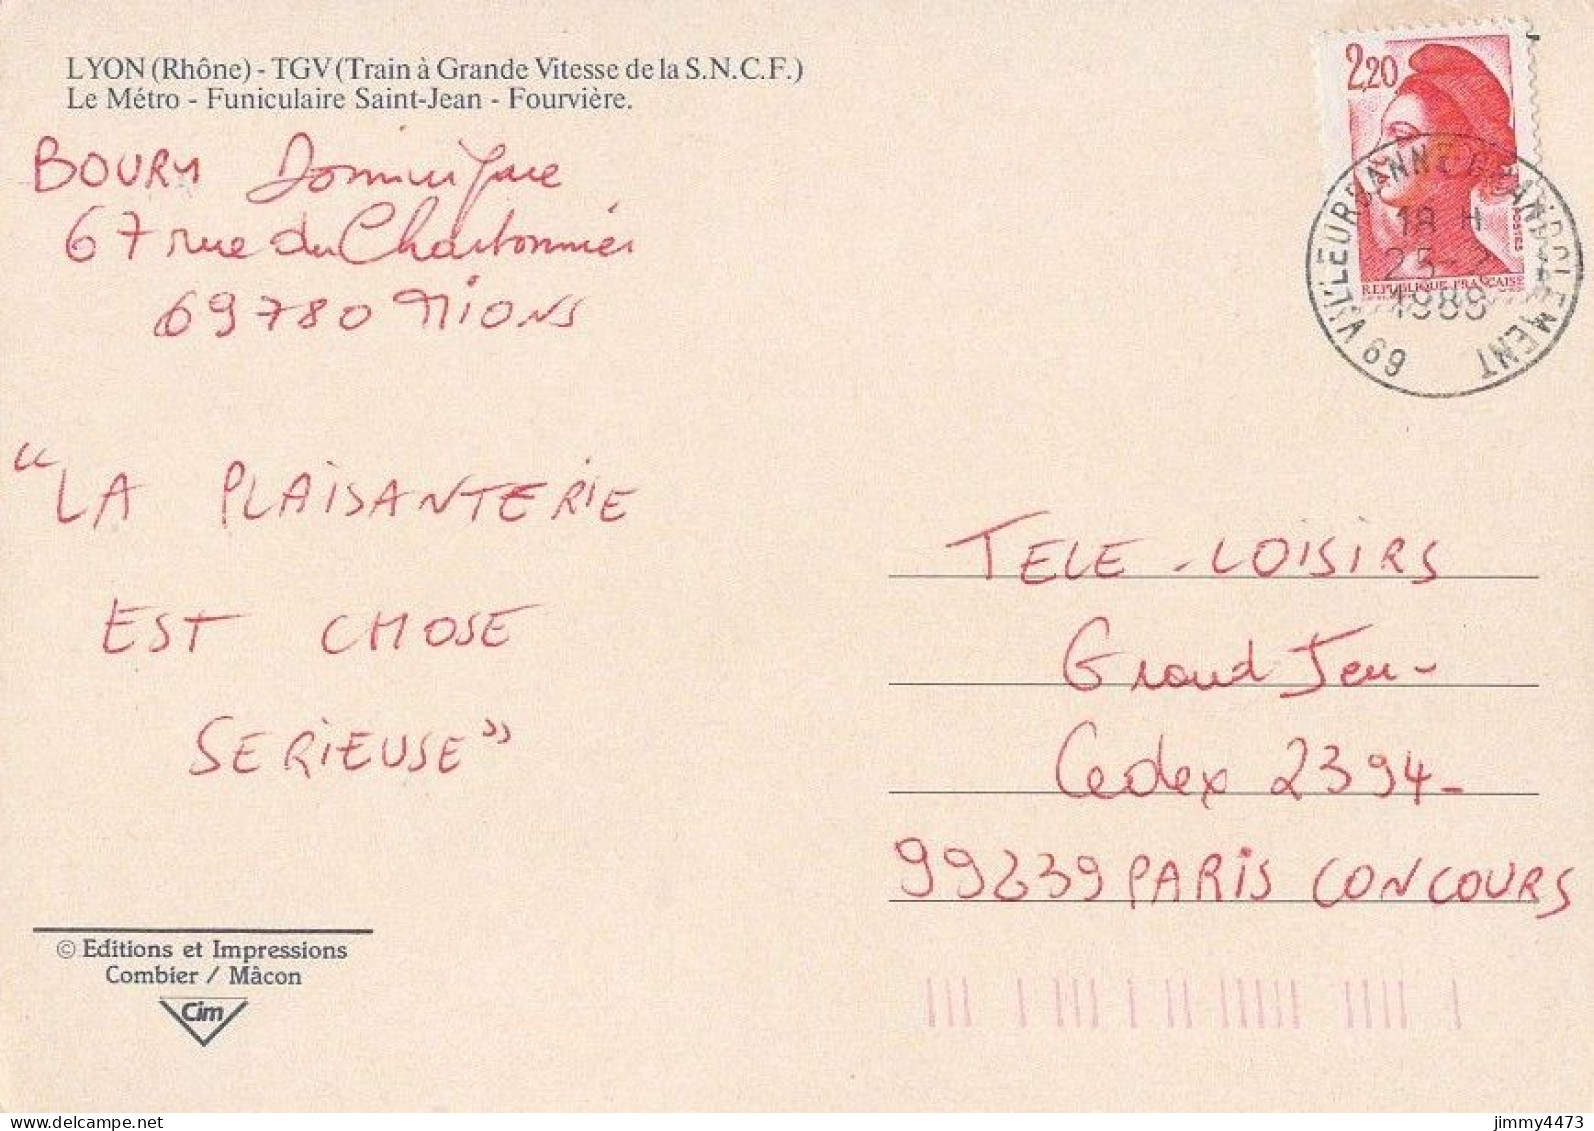 LYON (Rhône) - TGV (Train à Grande Vitesse de la S.N.C.F.)
Le Métro - Funiculaire Saint-Jean - Fourvière.
BOURY Dominique
67 rue du Charbonnier
69780 MIONS
"LA PLAiSANTERiE
EST CHOSE
SERiEUSE"
2,20
POSTES
REPUBLIQUE FRANÇAISE
69 VILLEURBANNE GRANDCLEMENT
18 H
25-2
1988
TELE-LOiSiRS
Grand Jeu-
Cedex 2394-
99239 PARiS CONCOURS
© Editions et Impressions
Combier / Mâcon
Cim
jimmy4473